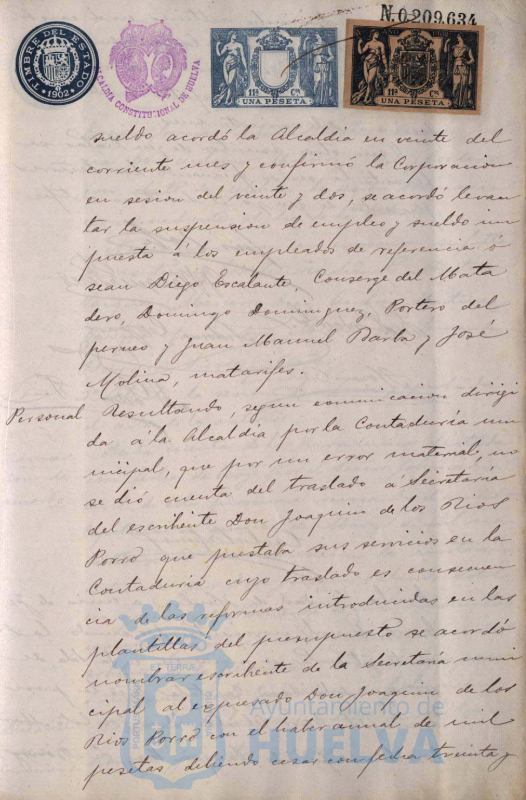 N.0.209,634
TIMBRE DEL ESTADO
1902
ALCALDIA CONSTITUCIONAL DE HUELVA
11ª Cª
UNA PESETA
11ª Cª
UNA PESETA
sueldo acordó la Alcaldia en veinte del
corriente mes y confirmó la Corporacion
en sesion del veinte y dos, se acordó levan
tar la suspension de empleo y sueldo im
puesta á los empleados de referencia ó
sean Diego Escalante, Conserge del Mata
dero, Domingo Dominguez, Portero del
perneo y Juan Manuel Barba y José
Molina, matarifes.
Personal Resultando, segun comunicacion dirigi
da á la Alcaldia por la Contaduria mu
nicipal, que por un error material, no
se dió cuenta del traslado á Secretaría
del escribiente Don Joaquin de los Rios
Porro que prestaba sus servicios en la
Contaduria cuyo traslado es consecuen
cia de las reformas introducidas en las
plantillas del presupuesto se acordó
nombrar escribiente de la Secretaría muni
cipal al expresado Don Joaquin de los
Rios Porro con el haber annal de mil
pesetas debiendo cesar con fecha treinta y
Ayuntamiento de
HUELVA